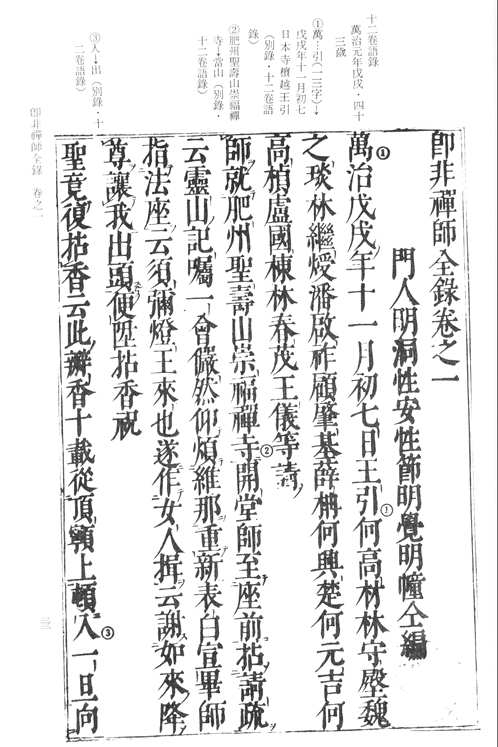 十二卷語錄
萬治元年戊戌・四十
三歲
①萬…引(一三字)→
戊戌年十一月初七
日本寺檀越王引
(別錄・十二卷語
錄)
②肥州聖壽山崇福禪
寺→當山(別錄・
十二卷語錄)
③入→出(別錄・十
二卷語錄)
即非禪師全錄 卷之一
即非禪師全錄卷之一
門人明洞性安性節明覺明幢仝編
①萬治戊戌年十一月初七日王引①何高材林守壂魏
之琰林繼煾潘啟祚顧肇基薛楠何興楚何元吉何
高楨盧國棟林春茂王儀等請
師就肥州聖壽山崇福禪寺②開堂師至座前拈請疏
云靈山記囑一會儼然仰煩維那重新表白宣畢師
指法座云須彌燈王來也遂作女人揖云謝如來降
尊讓我出頭便陞拈香祝
聖竟復拈香云此瓣香十載從頂𩕳上頓入③一旦向
三